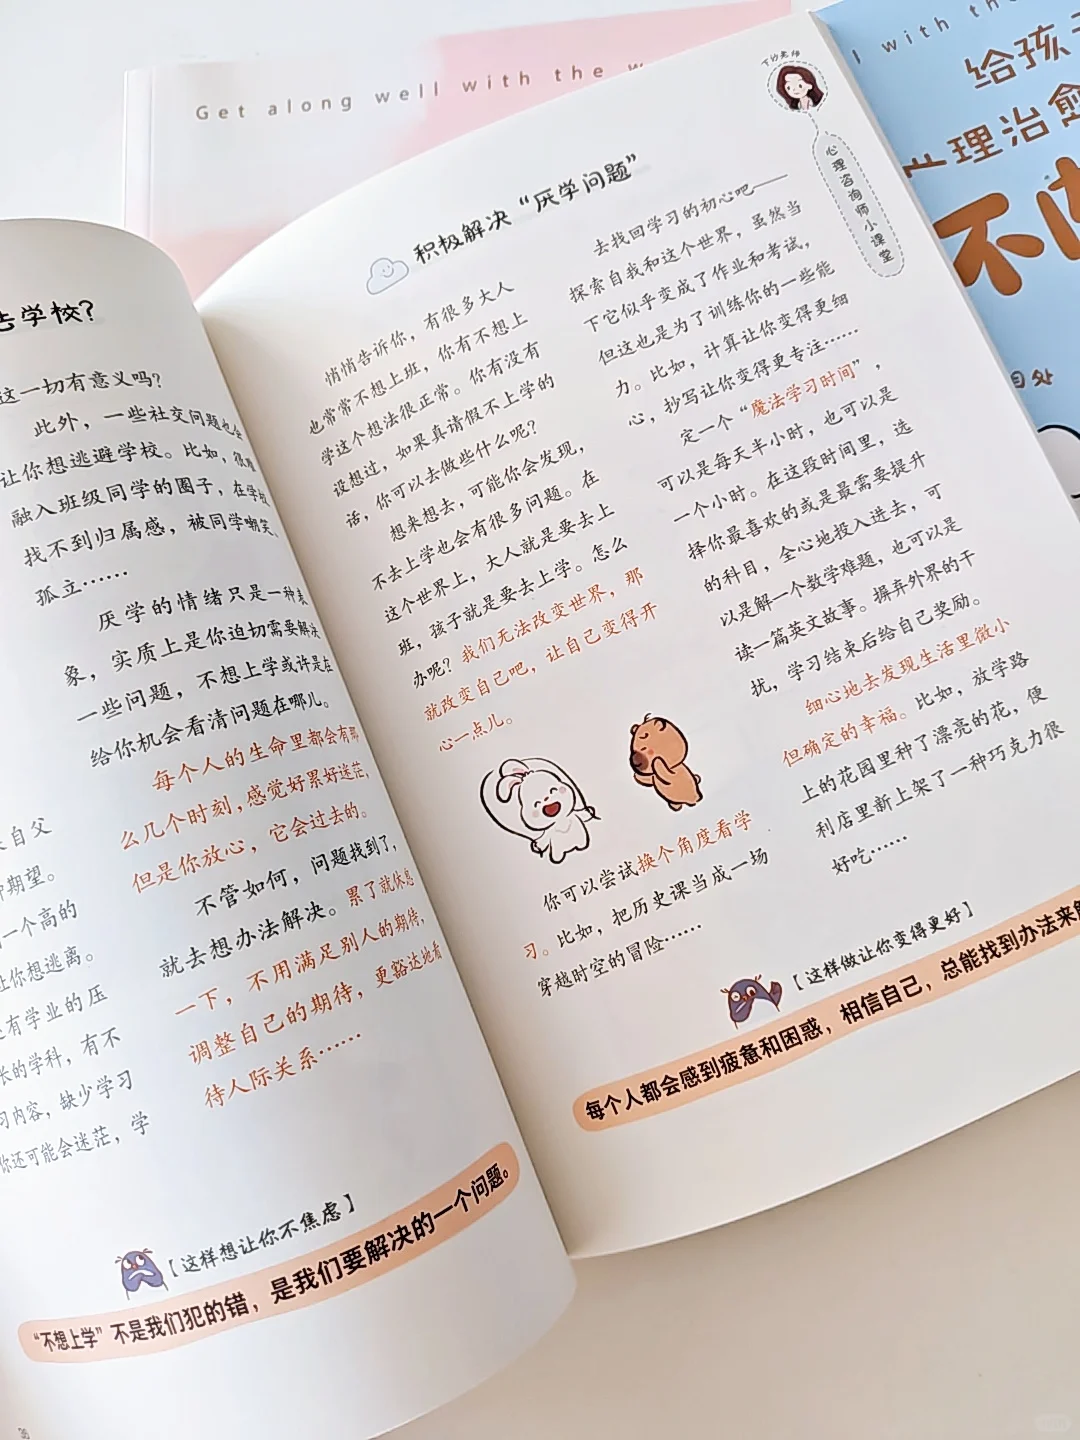 Get along well with the w
l with the
给孩子
心理治愈
不内
自处
去学校？
这一切有意义吗？
此外，一些社交问题也会
让你想逃避学校。比如，很难
融入班级同学的圈子，在学校
找不到归属感，被同学嘲笑、
孤立……
厌学的情绪只是一种表
象，实质上是你迫切需要解决
一些问题，不想上学或许是在
给你机会看清问题在哪儿。
每个人的生命里都会有那
么几个时刻，感觉好累好迷茫，
但是你放心，它会过去的。
不管如何，问题找到了，
就去想办法解决。累了就休息
一下，不用满足别人的期待，
调整自己的期待，更豁达地看
待人际关系……
自父
期望。
一个高的
让你想逃离。
有学业的压
长的学科，有不
习内容，缺少学习
你还可能会迷茫，学
【这样想让你不焦虑】
“不想上学”不是我们犯的错，是我们要解决的一个问题。
积极解决“厌学问题”
心理咨询师小课堂
悄悄告诉你，有很多大人
也常常不想上班，你有不想上
学这个想法很正常。你有没有
设想过，如果真请假不上学的
话，你可以去做些什么呢？
想来想去，可能你会发现，
不去上学也会有很多问题。在
这个世界上，大人就是要去上
班，孩子就是要去上学。怎么
办呢？我们无法改变世界，那
就改变自己吧，让自己变得开
心一点儿。
你可以尝试换个角度看学
习。比如，把历史课当成一场
穿越时空的冒险……
去找回学习的初心吧——
探索自我和这个世界，虽然当
下它似乎变成了作业和考试，
但这也是为了训练你的一些能
力。比如，计算让你变得更细
心，抄写让你变得更专注……
定一个“魔法学习时间”，
可以是每天半小时，也可以是
一个小时。在这段时间里，选
择你最喜欢的或是最需要提升
的科目，全心地投入进去，可
以是解一个数学难题，也可以是
读一篇英文故事。摒弃外界的干
扰，学习结束后给自己奖励。
细心地去发现生活里微小
但确定的幸福。比如，放学路
上的花园里种了漂亮的花，便
利店里新上架了一种巧克力很
好吃……
【这样做让你变得更好】
每个人都会感到疲惫和困惑，相信自己，总能找到办法来解